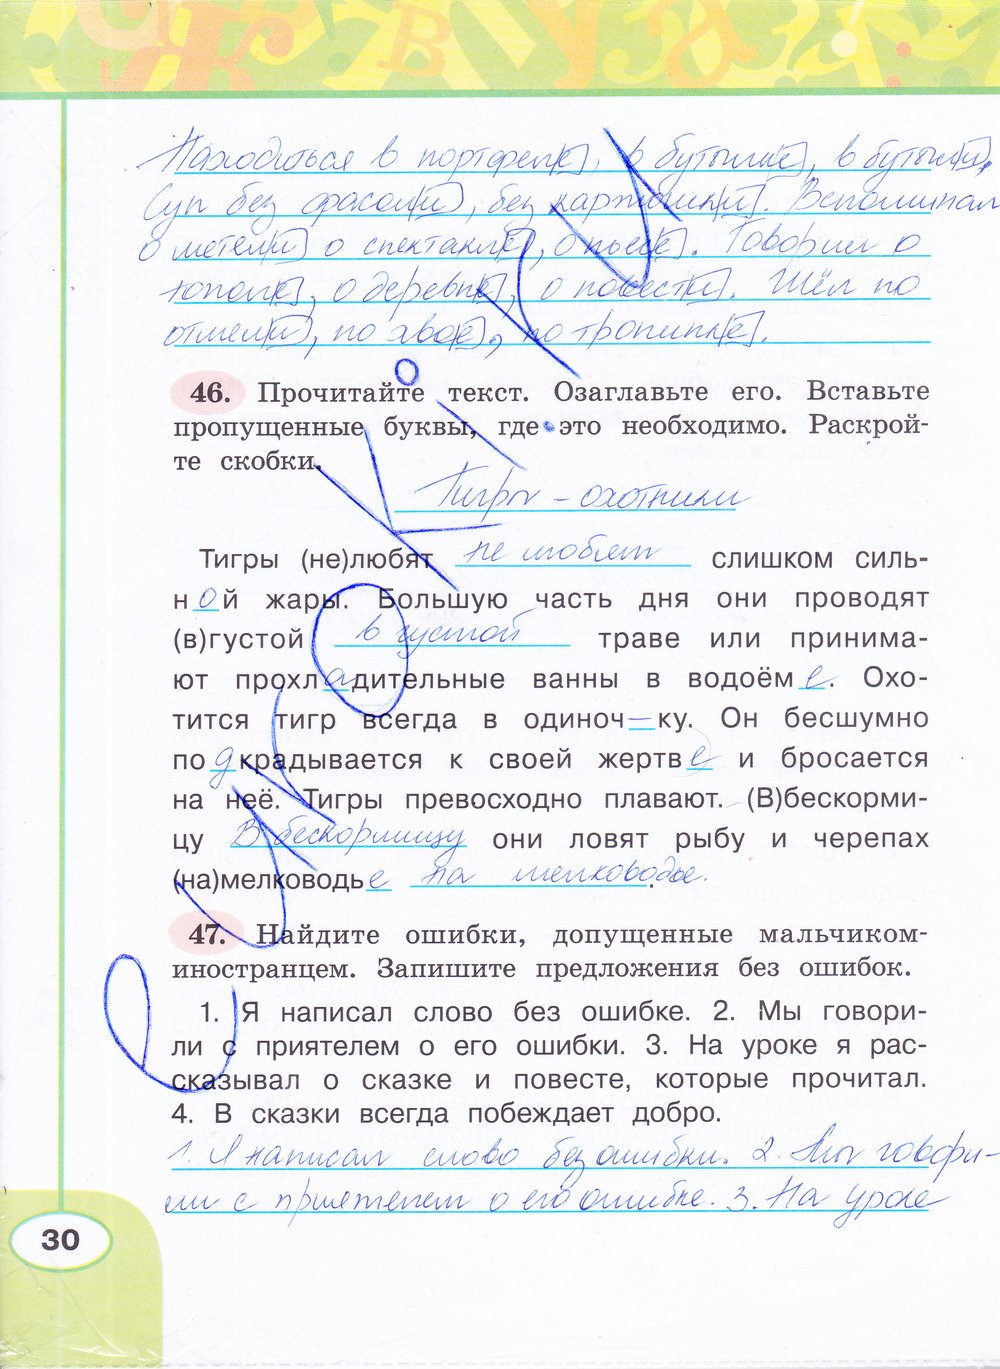 Находиться в портфел[е], в бутылк[е], в бутыл[и].
Суп без фасол[и], без картошк[и]. Вспоминал
о метел[и] о спектакл[е], о пьес[е]. Говорили о
топол[е], о деревн[е], о повест[и]. Шёл по
отмел[и], по хво[е], по тропинк[е].
46. Прочитайте текст. Озаглавьте его. Вставьте
пропущенные буквы, где это необходимо. Раскрой-
те скобки.
Тигры - охотники
Тигры (не)любят не любят слишком силь-
ной жары. Большую часть дня они проводят
(в)густой в густой траве или принима-
ют прохладительные ванны в водоёме. Охо-
тится тигр всегда в одиноч–ку. Он бесшумно
подкрадывается к своей жертве и бросается
на неё. Тигры превосходно плавают. (В)бескорми-
цу В бескормицу они ловят рыбу и черепах
(на)мелководье на мелководье.
47. Найдите ошибки, допущенные мальчиком-
иностранцем. Запишите предложения без ошибок.
1. Я написал слово без ошибке. 2. Мы говори-
ли с приятелем о его ошибки. 3. На уроке я рас-
сказывал о сказке и повесте, которые прочитал.
4. В сказки всегда побеждает добро.
1. Я написал слово без ошибки. 2. Мы говори-
ли с приятелем о его ошибке. 3. На уроке
30